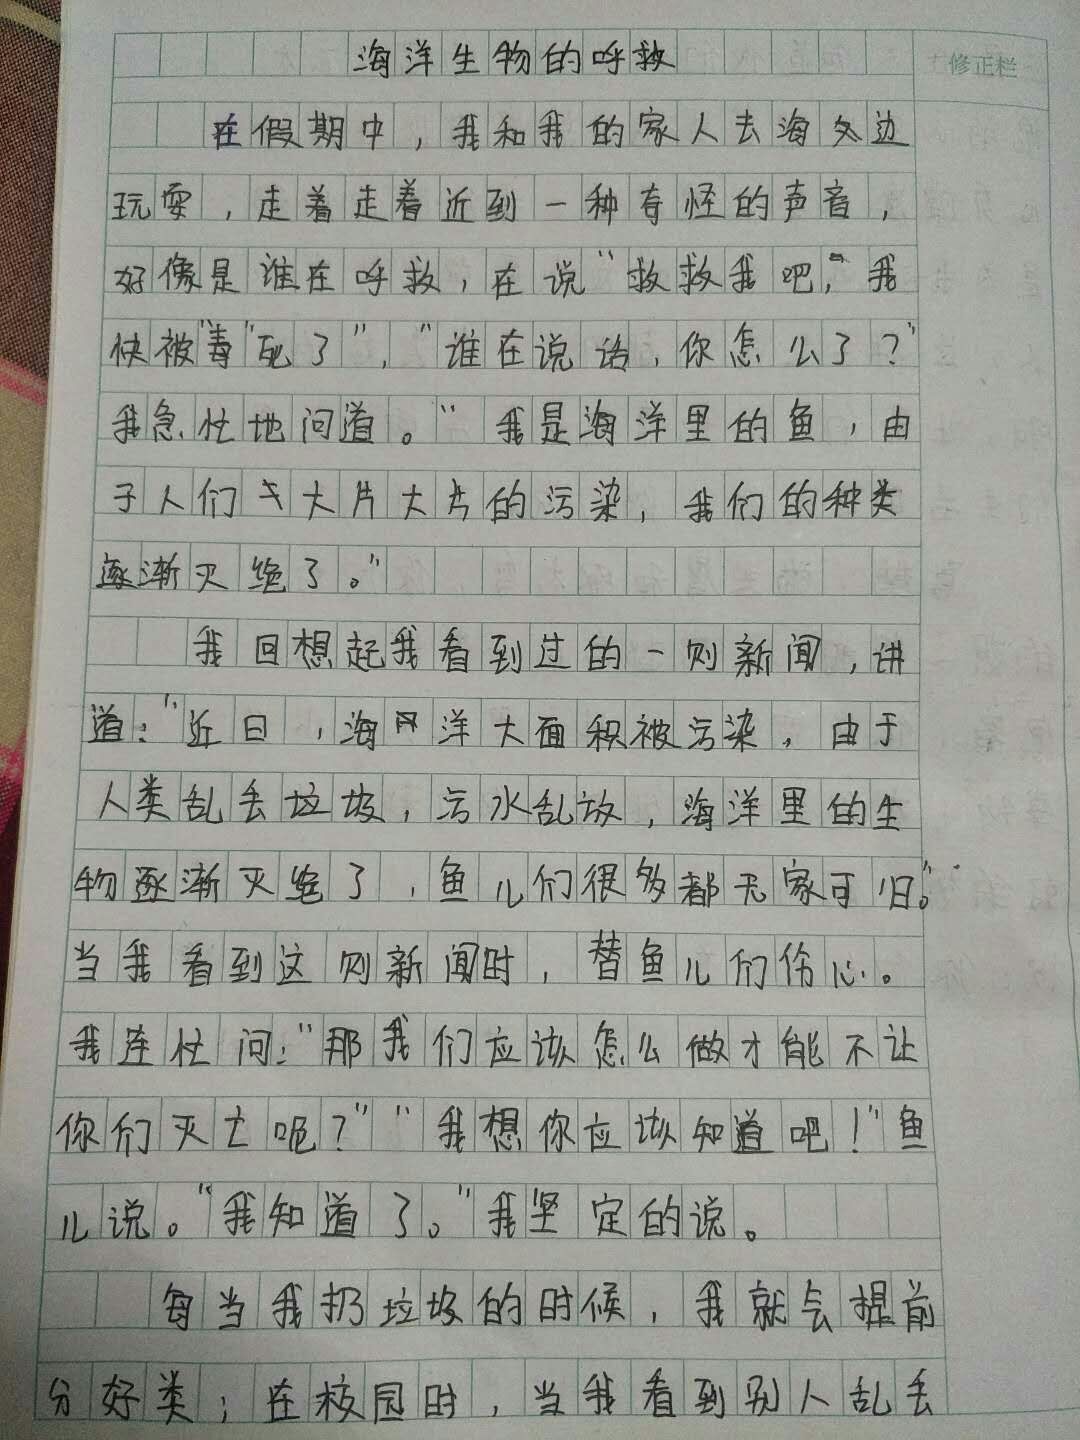 海洋生物的呼救
修正栏
在假期中，我和我的家人去海边
玩耍，走着走着近到一种奇怪的声音，
好像是谁在呼救，在说“救救我吧，”我
快被“毒”死了”，“谁在说话，你怎么了？”
我急忙地问道。“我是海洋里的鱼，由
于人们大片大片的污染，我们的种类
逐渐灭绝了。”
我回想起我看到过的一则新闻，讲
道：“近日，海洋大面积被污染，由于
人类乱丢垃圾，污水乱放，海洋里的生
物逐渐灭绝了，鱼儿们很多都无家可归。”
当我看到这则新闻时，替鱼儿们伤心。
我连忙问：“那我们应该怎么做才能不让
你们灭亡呢？”“我想你应该知道吧！”鱼
儿说。“我知道了。”我坚定的说。
每当我扔垃圾的时候，我就会提前
分好类；在校园时，当我看到别人乱丢